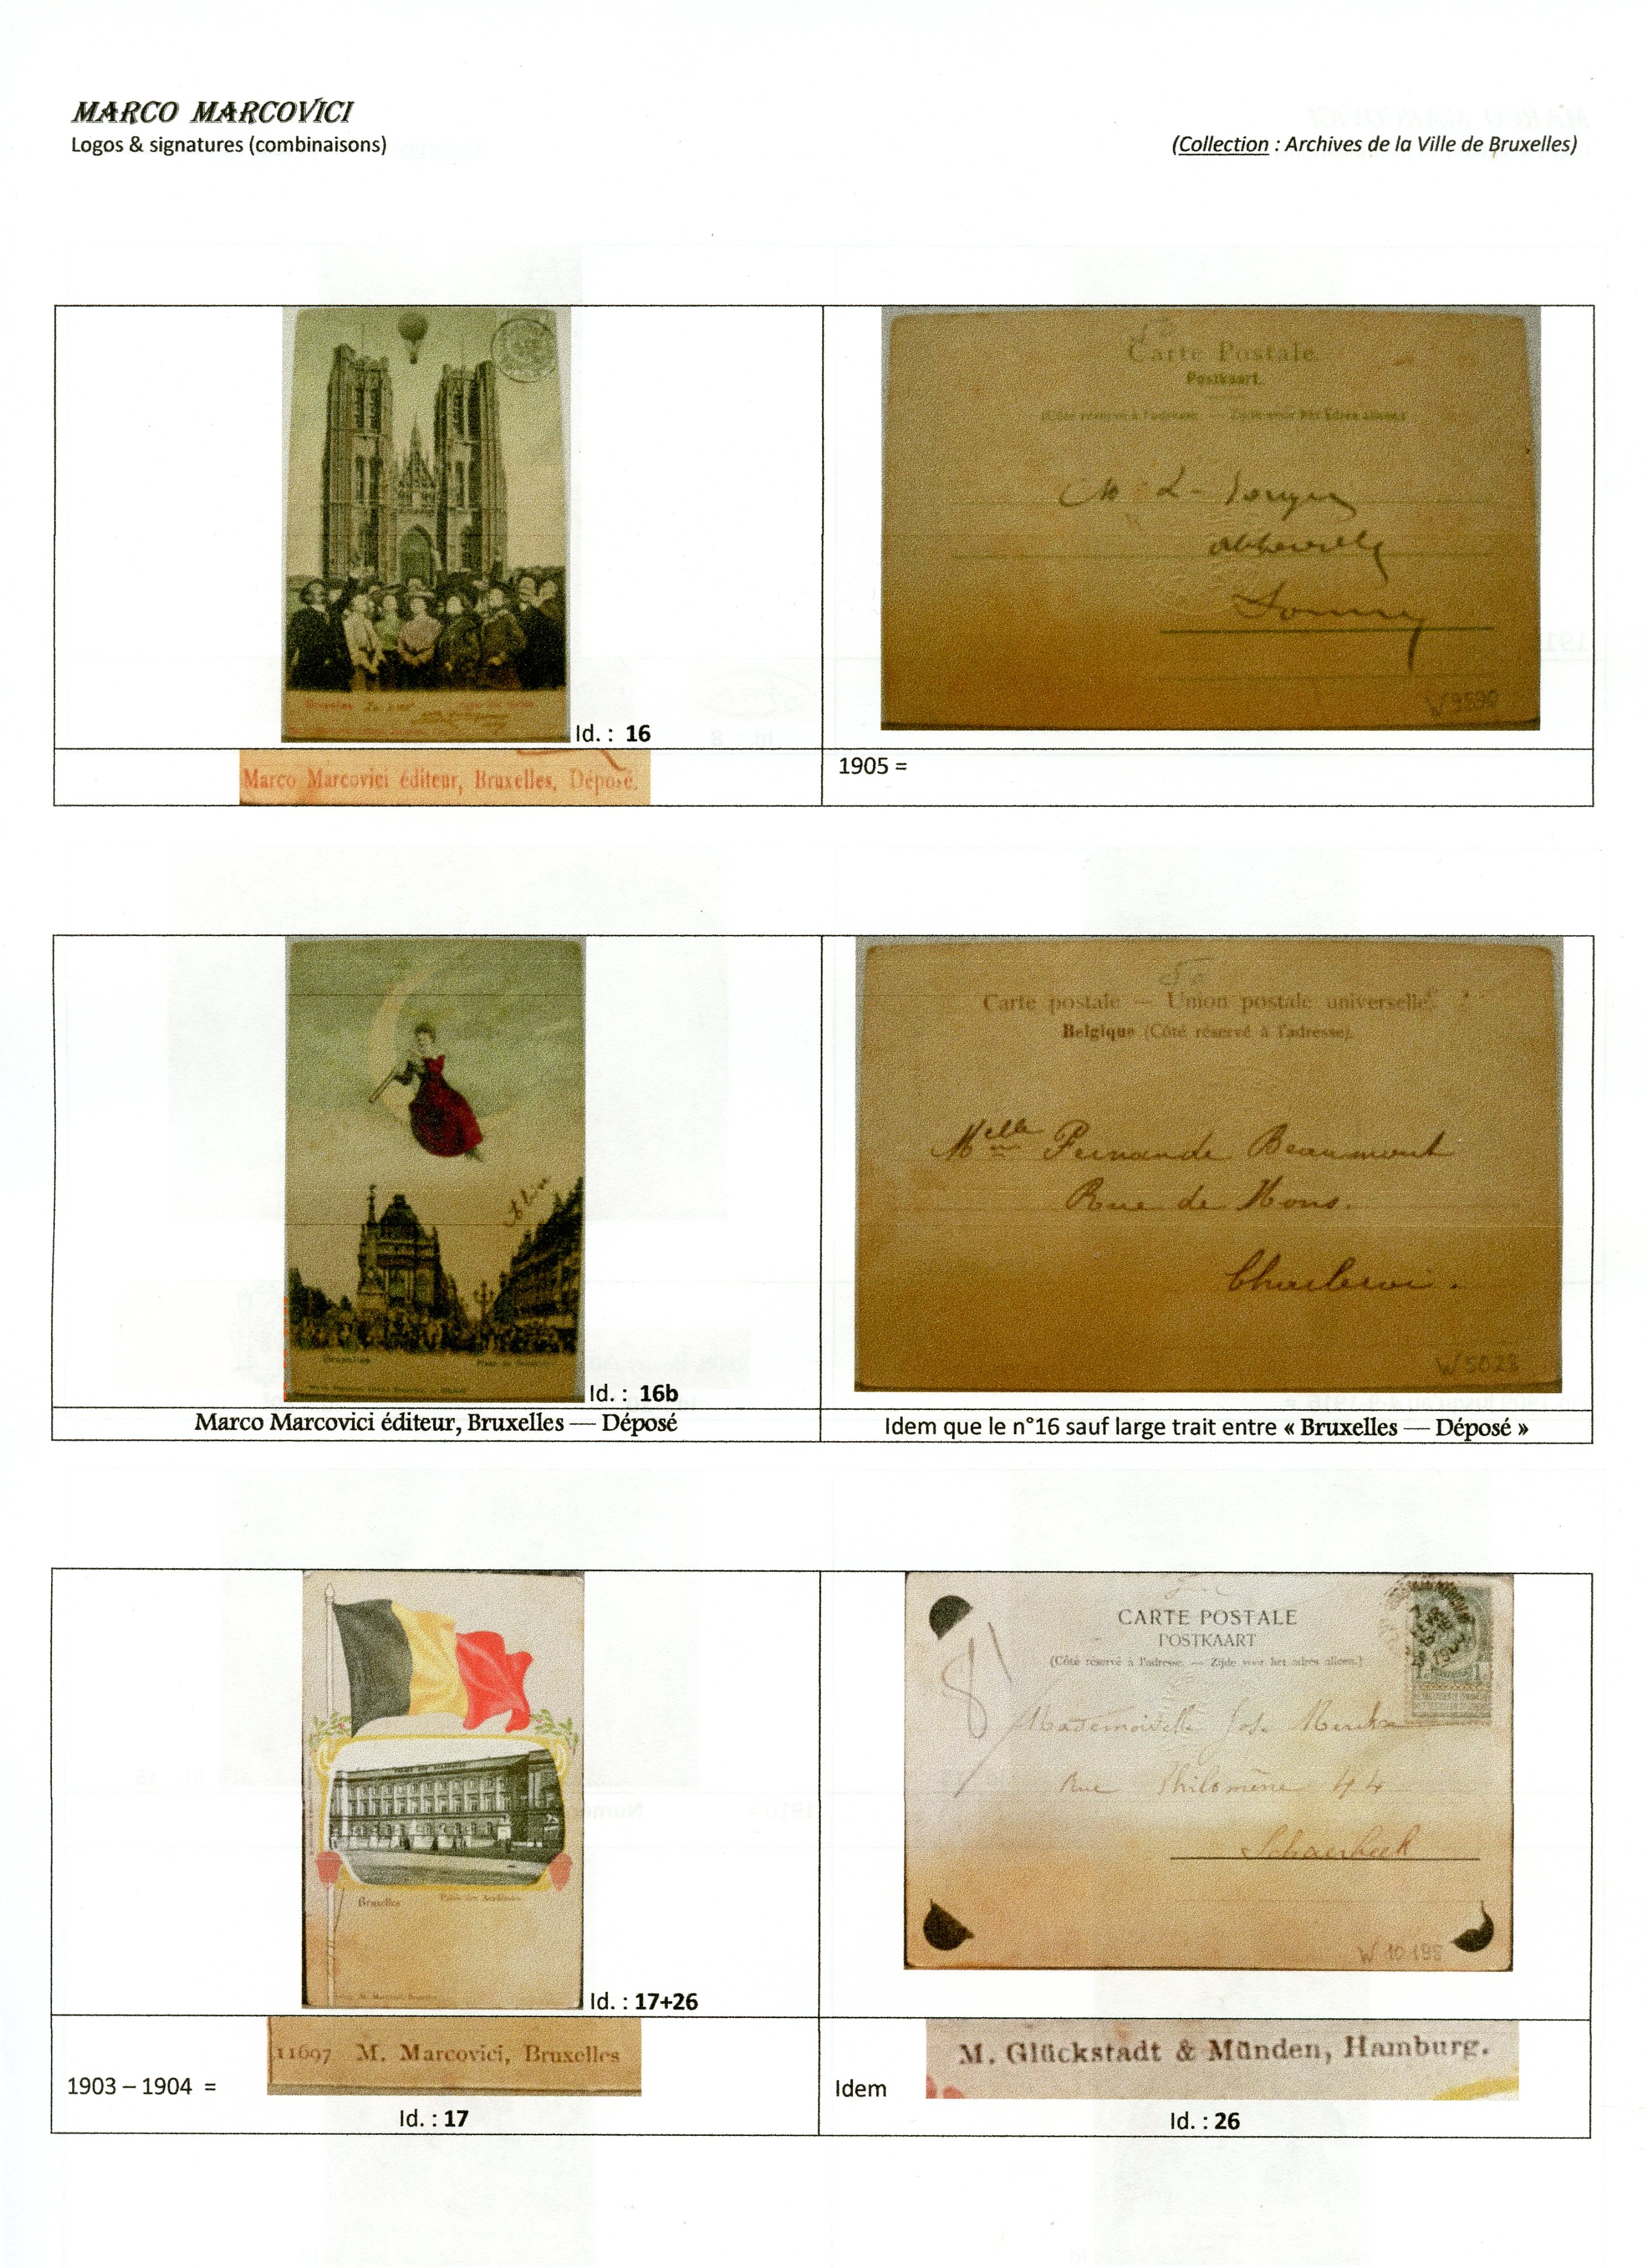 MARCO MARCOVICI
Logos & signatures (combinaisons)
(Collection : Archives de la Ville de Bruxelles)
Bruxelles
Id. : 16
Carte Postale.
Postkaart.
(Côté réservé à l'adresse. — Zijde voor het adres alleen.)
W 9590
Marco Marcovici éditeur, Bruxelles, Déposé.
1905 =
Bruxelles
Id. : 16b
50
Carte postale — Union postale universelle.
Belgique (Côté réservé à l'adresse).
Melle Fernande Beaumont
Rue de Mons.
Charleroi.
W 5023
Marco Marcovici éditeur, Bruxelles — Déposé
Idem que le n°16 sauf large trait entre « Bruxelles — Déposé »
Bruxelles
Palais des Académies
Id. : 17+26
CARTE POSTALE
POSTKAART
(Côté réservé à l'adresse. — Zijde voor het adres alleen.)
81
Mademoiselle
Rue Philomène 44
Schaerbeek
W 10198
11697 M. Marcovici, Bruxelles
1903 – 1904 =
Id. : 17
M. Glückstadt & Münden, Hamburg.
Idem
Id. : 26